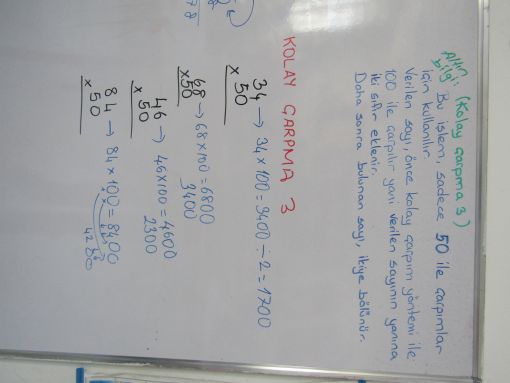 Altın bilgi: (Kolay çarpma 3)
Bu işlem, sadece 50 ile çarpımlar
için kullanılır.
Verilen sayı, önce kolay çarpım yöntemi ile
100 ile çarpılır yani verilen sayının yanına
iki sıfır eklenir.
Daha sonra bulunan sayı, ikiye bölünür.
KOLAY ÇARPMA 3
34 → 34 x 100 = 3400 ÷ 2 = 1700
x 50
68 → 68 x 100 = 6800
x 50 3400
46 → 46 x 100 = 4600
x 50 2300
84 → 84 x 100 = 8400
x 50 4200